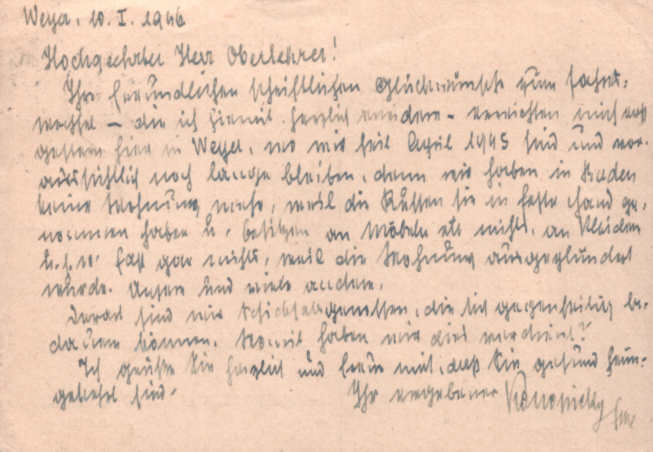 Weyer, 10. I. 1946
Hochgeehrter Herr Oberlehrer!
Ihre freundlichen schriftlichen Glückwünsche zum Jahres-
wechsel – die ich hiemit herzlich erwidere – erreichten mich erst
gestern hier in Weyer, wo wir seit April 1945 sind und vor-
aussichtlich noch lange bleiben, denn wir haben in Baden
keine Wohnung mehr, weil die Russen sie in feste Hand ge-
nommen haben u. besitzen an Möbeln etc nichts, an Kleidern
u.s.w. fast gar nichts, weil die Wohnung ausgeplündert
wurde. Aussen und viele andere.
Derart sind wir Schicksalsgenossen, die sich gegenseitig be-
dauern können. Womit haben wir dies verdient?
Ich grüße Sie herzlich und freue mich, daß Sie gesund heim-
gekehrt sind.
Ihr ergebener